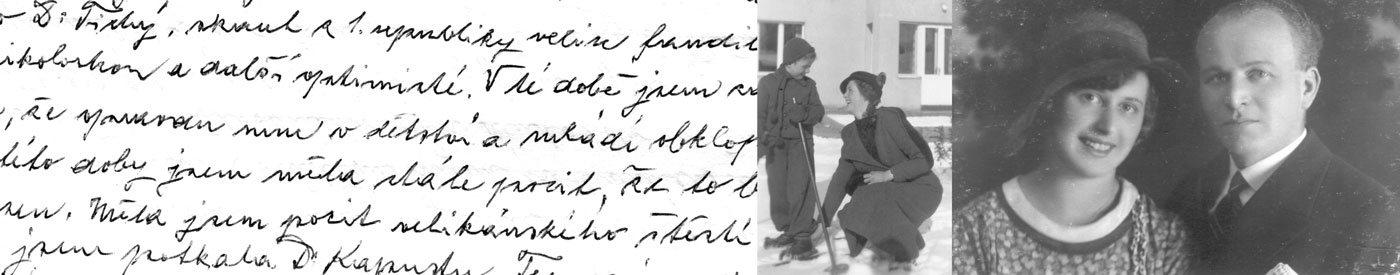 D. Tichý, skaut z 1. republiky velice fandil
a další optimisté. V té době jsem
, že mne v dětství a mládí obklop
této doby jsem měla stále pocit, že to b
sen. Měla jsem pocit velikánského štěstí
jsem potkala D. Kapustu